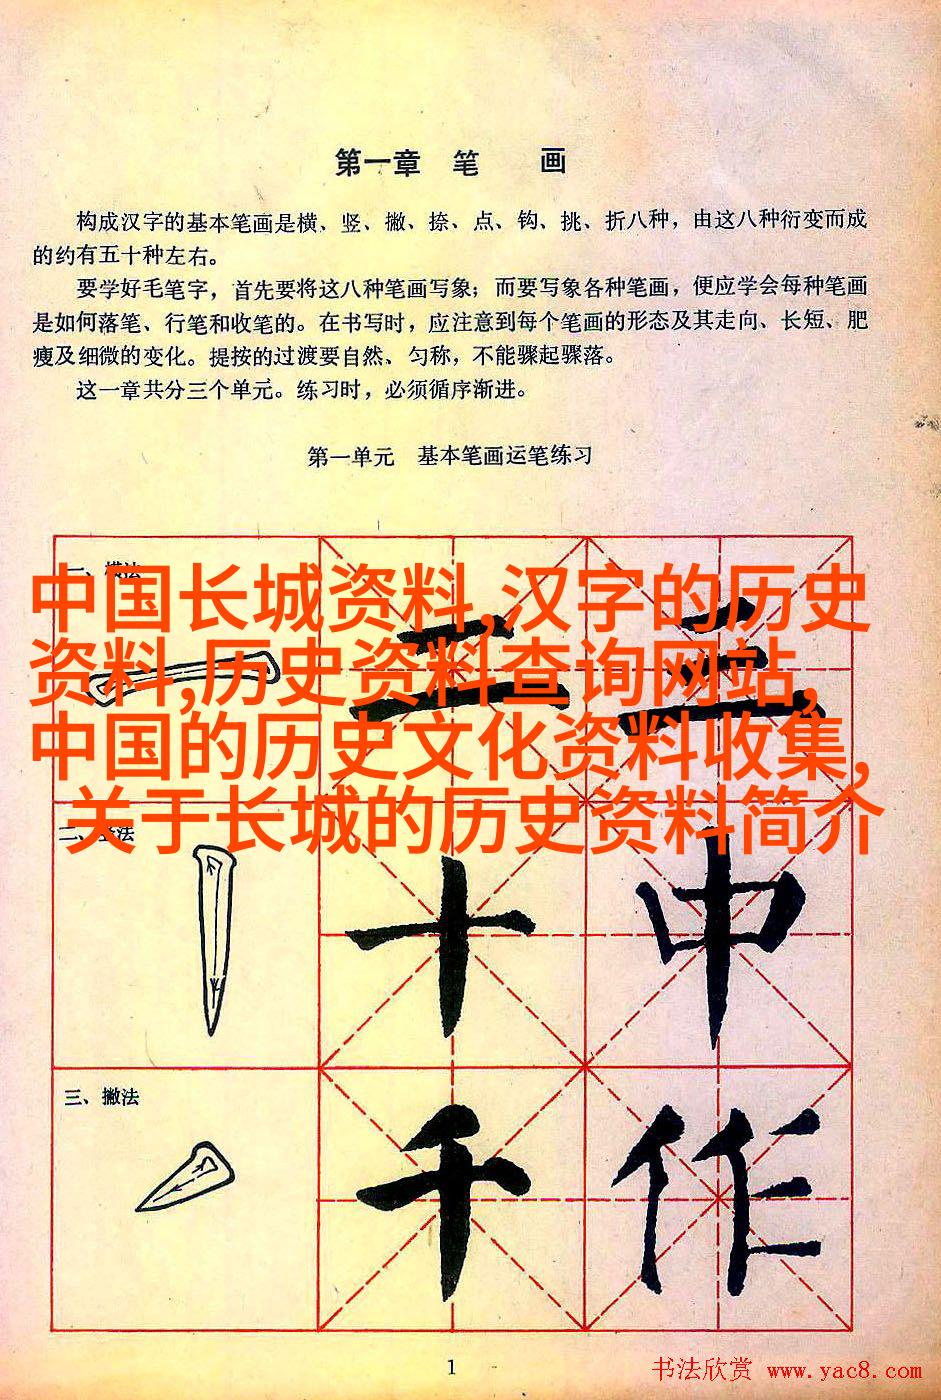 第一章 笔 画
构成汉字的基本笔画是横、竖、撇、捺、点、钩、挑、折八种，由这八种衍变而成
的约有五十种左右。
要学好毛笔字，首先要将这八种笔画写象；而要写象各种笔画，便应学会每种笔画
是如何落笔、行笔和收笔的。在书写时，应注意到每个笔画的形态及其走向、长短、肥
瘦及细微的变化。提按的过渡要自然、匀称，不能骤起骤落。
这一章共分三个单元。练习时，必须循序渐进。
第一单元 基本笔画运笔练习
一、横法
中国长城资料,汉字的历史
资料,历史资料查询网站,
中国的历史文化资料收集,
关于长城的历史资料简介
二 三
二、竖法
十 中
三、撇法
千 作
1
书法欣赏 www.yac8.com